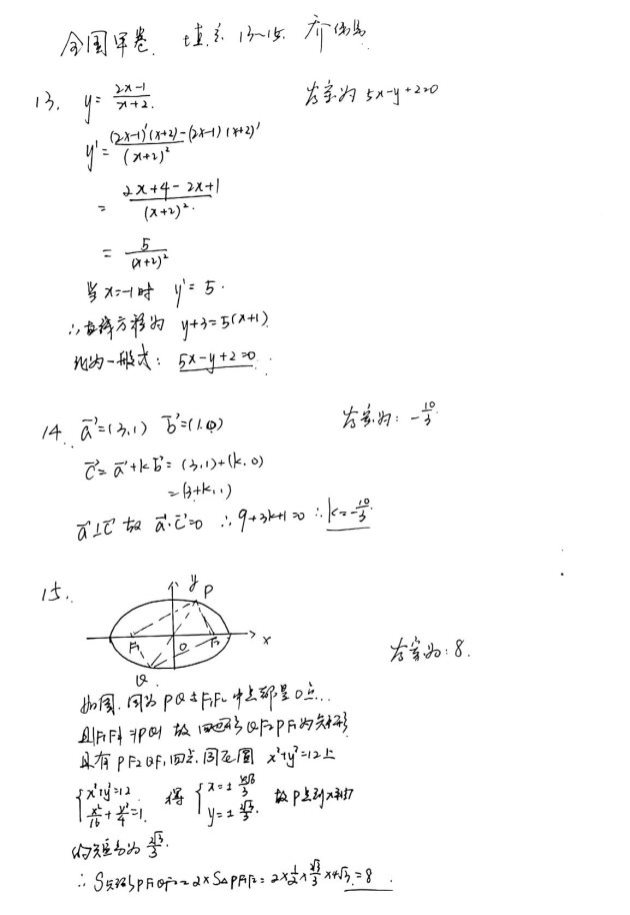 全国甲卷 填空 13~15
13. y = \frac{2x-1}{x+2}
答案为 5x-y+2=0
y' = \frac{(2x-1)'(x+2)-(2x-1)(x+2)'}{(x+2)^2}
= \frac{2x+4-2x+1}{(x+2)^2}.
= \frac{5}{(x+2)^2}
当 x=-1时 y'=5.
∴直线方程为 y+3=5(x+1)
化为一般式: 5x-y+2=0.
14. \vec{a}=(3,1) \vec{b}=(1.0)
答案为: -\frac{10}{3}
\vec{c}=\vec{a}+k\vec{b}=(3,1)+(k,0)
=(3+k,1)
\vec{a}⊥\vec{c} 故 \vec{a}·\vec{c}=0 ∴9+3k+1=0 ∴k=-\frac{10}{3}.
15.
y P
F₁ O F₂ x
Q
答案为: 8.
如图. 因为 PQ与F₁F₂中点都是O点..
且|F₁F₂|=|PQ| 故 四边形 QF₂PF₁为矩形
且有 PF₂QF₁四点.同在圆 x²+y²=12上
{ x²+y²=12 \frac{x²}{16}+\frac{y²}{4}=1. 得 { x=±\frac{4\sqrt{6}}{3} y=±\frac{2\sqrt{3}}{3}. 故P点到x轴
的距离为\frac{2\sqrt{3}}{3}.
∴S矩形PF₁QF₂=2×S△PF₁F₂=2×\frac{1}{2}×\frac{2\sqrt{3}}{3}×4\sqrt{3}=8.